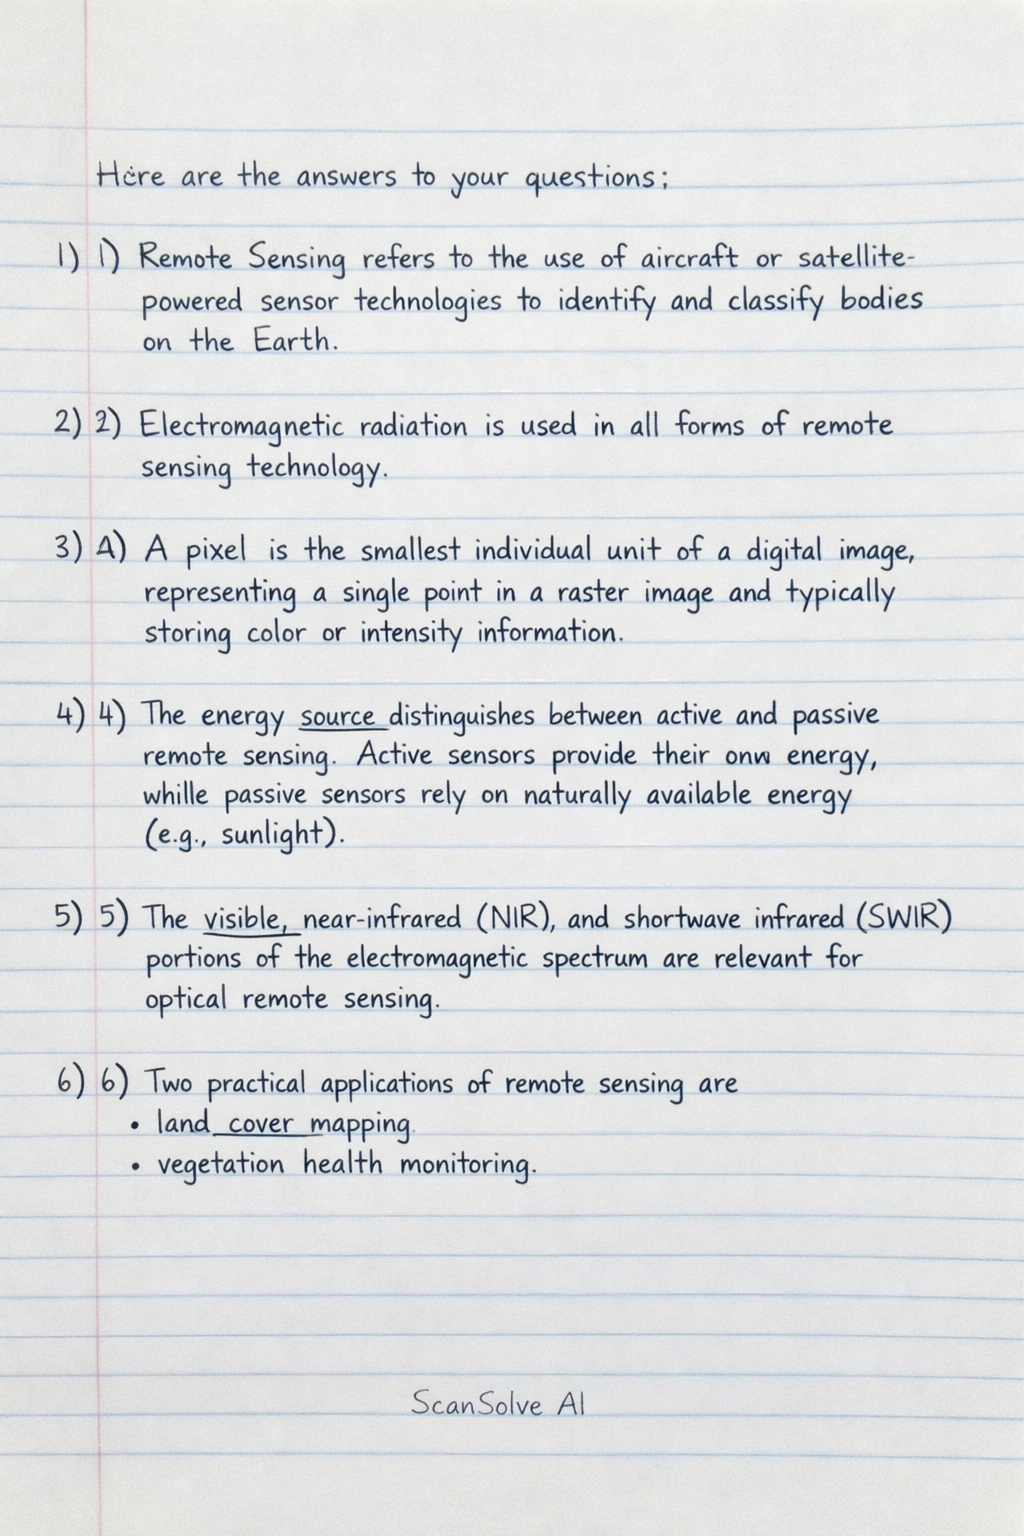 Here are the answers to your questions;
1) 1) Remote Sensing refers to the use of aircraft or satellite-
powered sensor technologies to identify and classify bodies
on the Earth.
2) 2) Electromagnetic radiation is used in all forms of remote
sensing technology.
3) A) A pixel is the smallest individual unit of a digital image,
representing a single point in a raster image and typically
storing color or intensity information.
4) 4) The energy source distinguishes between active and passive
remote sensing. Active sensors provide their onw energy,
whille passive sensors rely on naturally available energy
(e.g., sunlight).
5) 5) The visible, near-infrared (NIR), and shortwave infrared (SWIR)
portions of the electromagnetic spectrum are relevant for
optical remote sensing.
6) 6) Two practical applications of remote sensing are
• land cover mapping.
• vegetation health monitoring.
ScanSolve AI